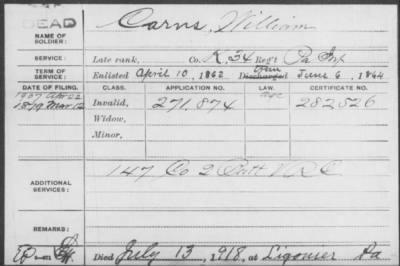 DEAD
NAME OF SOLDIER: Carns, William
SERVICE: Late rank, Co. K, 54 Reg't Pa Inf
TERM OF SERVICE: Enlisted April 10, 1862 Discharged June 6, 1864
DATE OF FILING. CLASS. APPLICATION NO. LAW. CERTIFICATE NO.
1907
1879 Mar 12 Invalid, 271,874 282,526
Widow,
Minor,
ADDITIONAL SERVICES: 147 Co 2 Batt V R C
REMARKS:
Died July 13, 1918, at Ligonier Pa